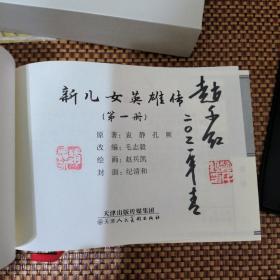 新儿女英雄传
(第一册)
原著：袁静 孔厥
改编：毛志毅
绘画：赵兵凯
封面：纪清和
天津出版传媒集团
天津人民美术出版社
二〇二一年春